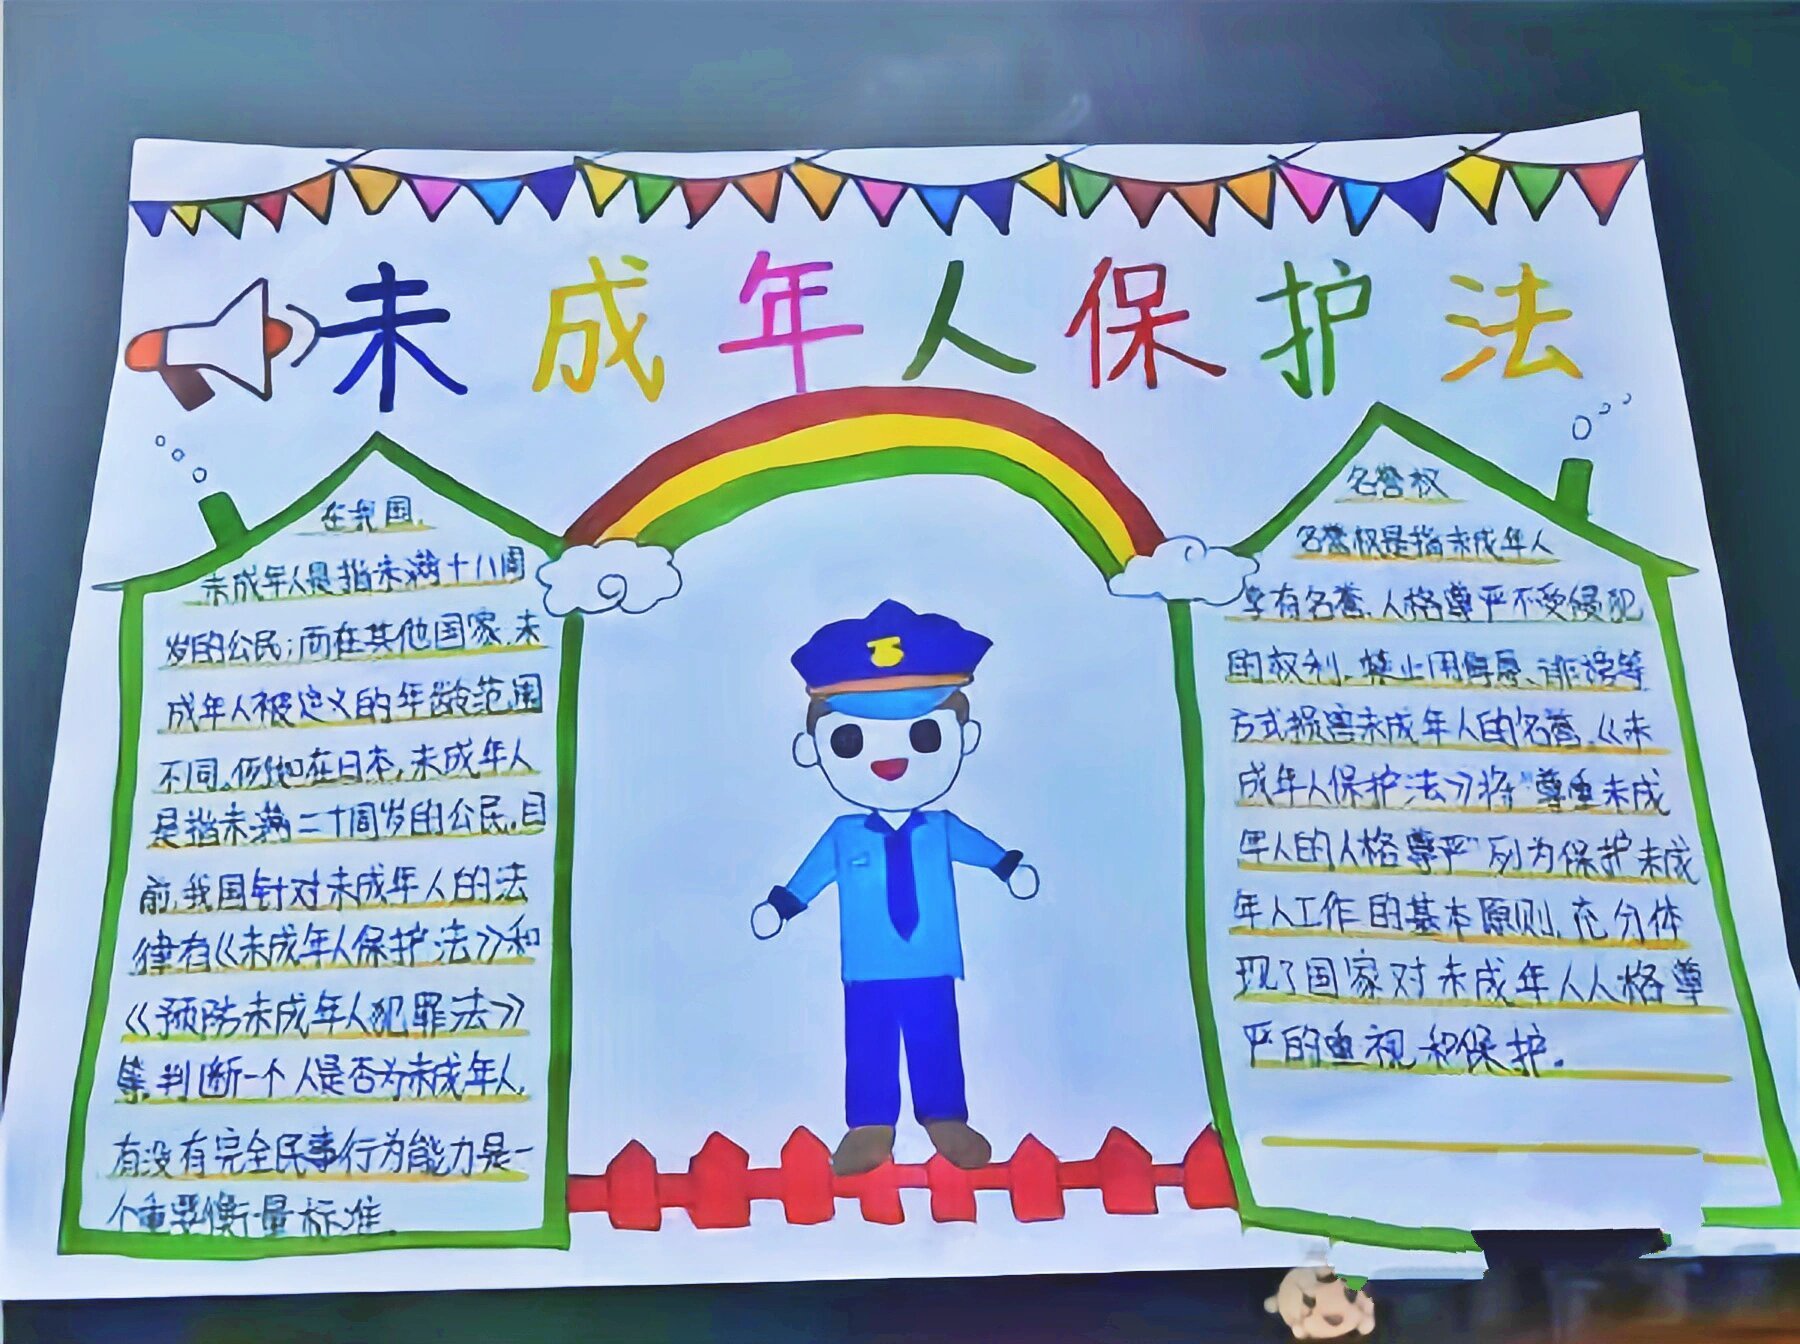 未成年人保护法
在我国,
未成年人是指未满十八周
岁的公民;而在其他国家,未
成年人被定义的年龄范围
不同,例如在日本,未成年人
是指未满二十周岁的公民,目
前,我国针对未成年人的法
律有《未成年人保护法》和
《预防未成年人犯罪法》
等,判断一个人是否为未成年人,
有没有完全民事行为能力是一
个重要衡量标准.
名誉权
名誉权是指未成年人
享有名誉、人格尊严不受侵犯
的权利,禁止用侮辱、诽谤等
方式损害未成年人的名誉,《未
成年人保护法》将“尊重未成
年人的人格尊严”列为保护未成
年人工作的基本原则,充分体
现了国家对未成年人人格尊
严的重视和保护.